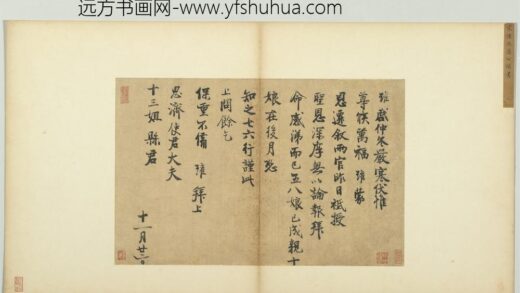 远方书画网-www.yfshuhua.com
啟仲冬嚴寒伏惟
尊候萬福 蒙
恩遷叙兩官昨日祗授
聖恩深厚無以論報拜
命感涕而已五八娘已成親十
娘在後月恐
知之七六行謹此
上問餘乞
保重不備 拜上
思濟使君大夫
十三姐縣君
十一月廿